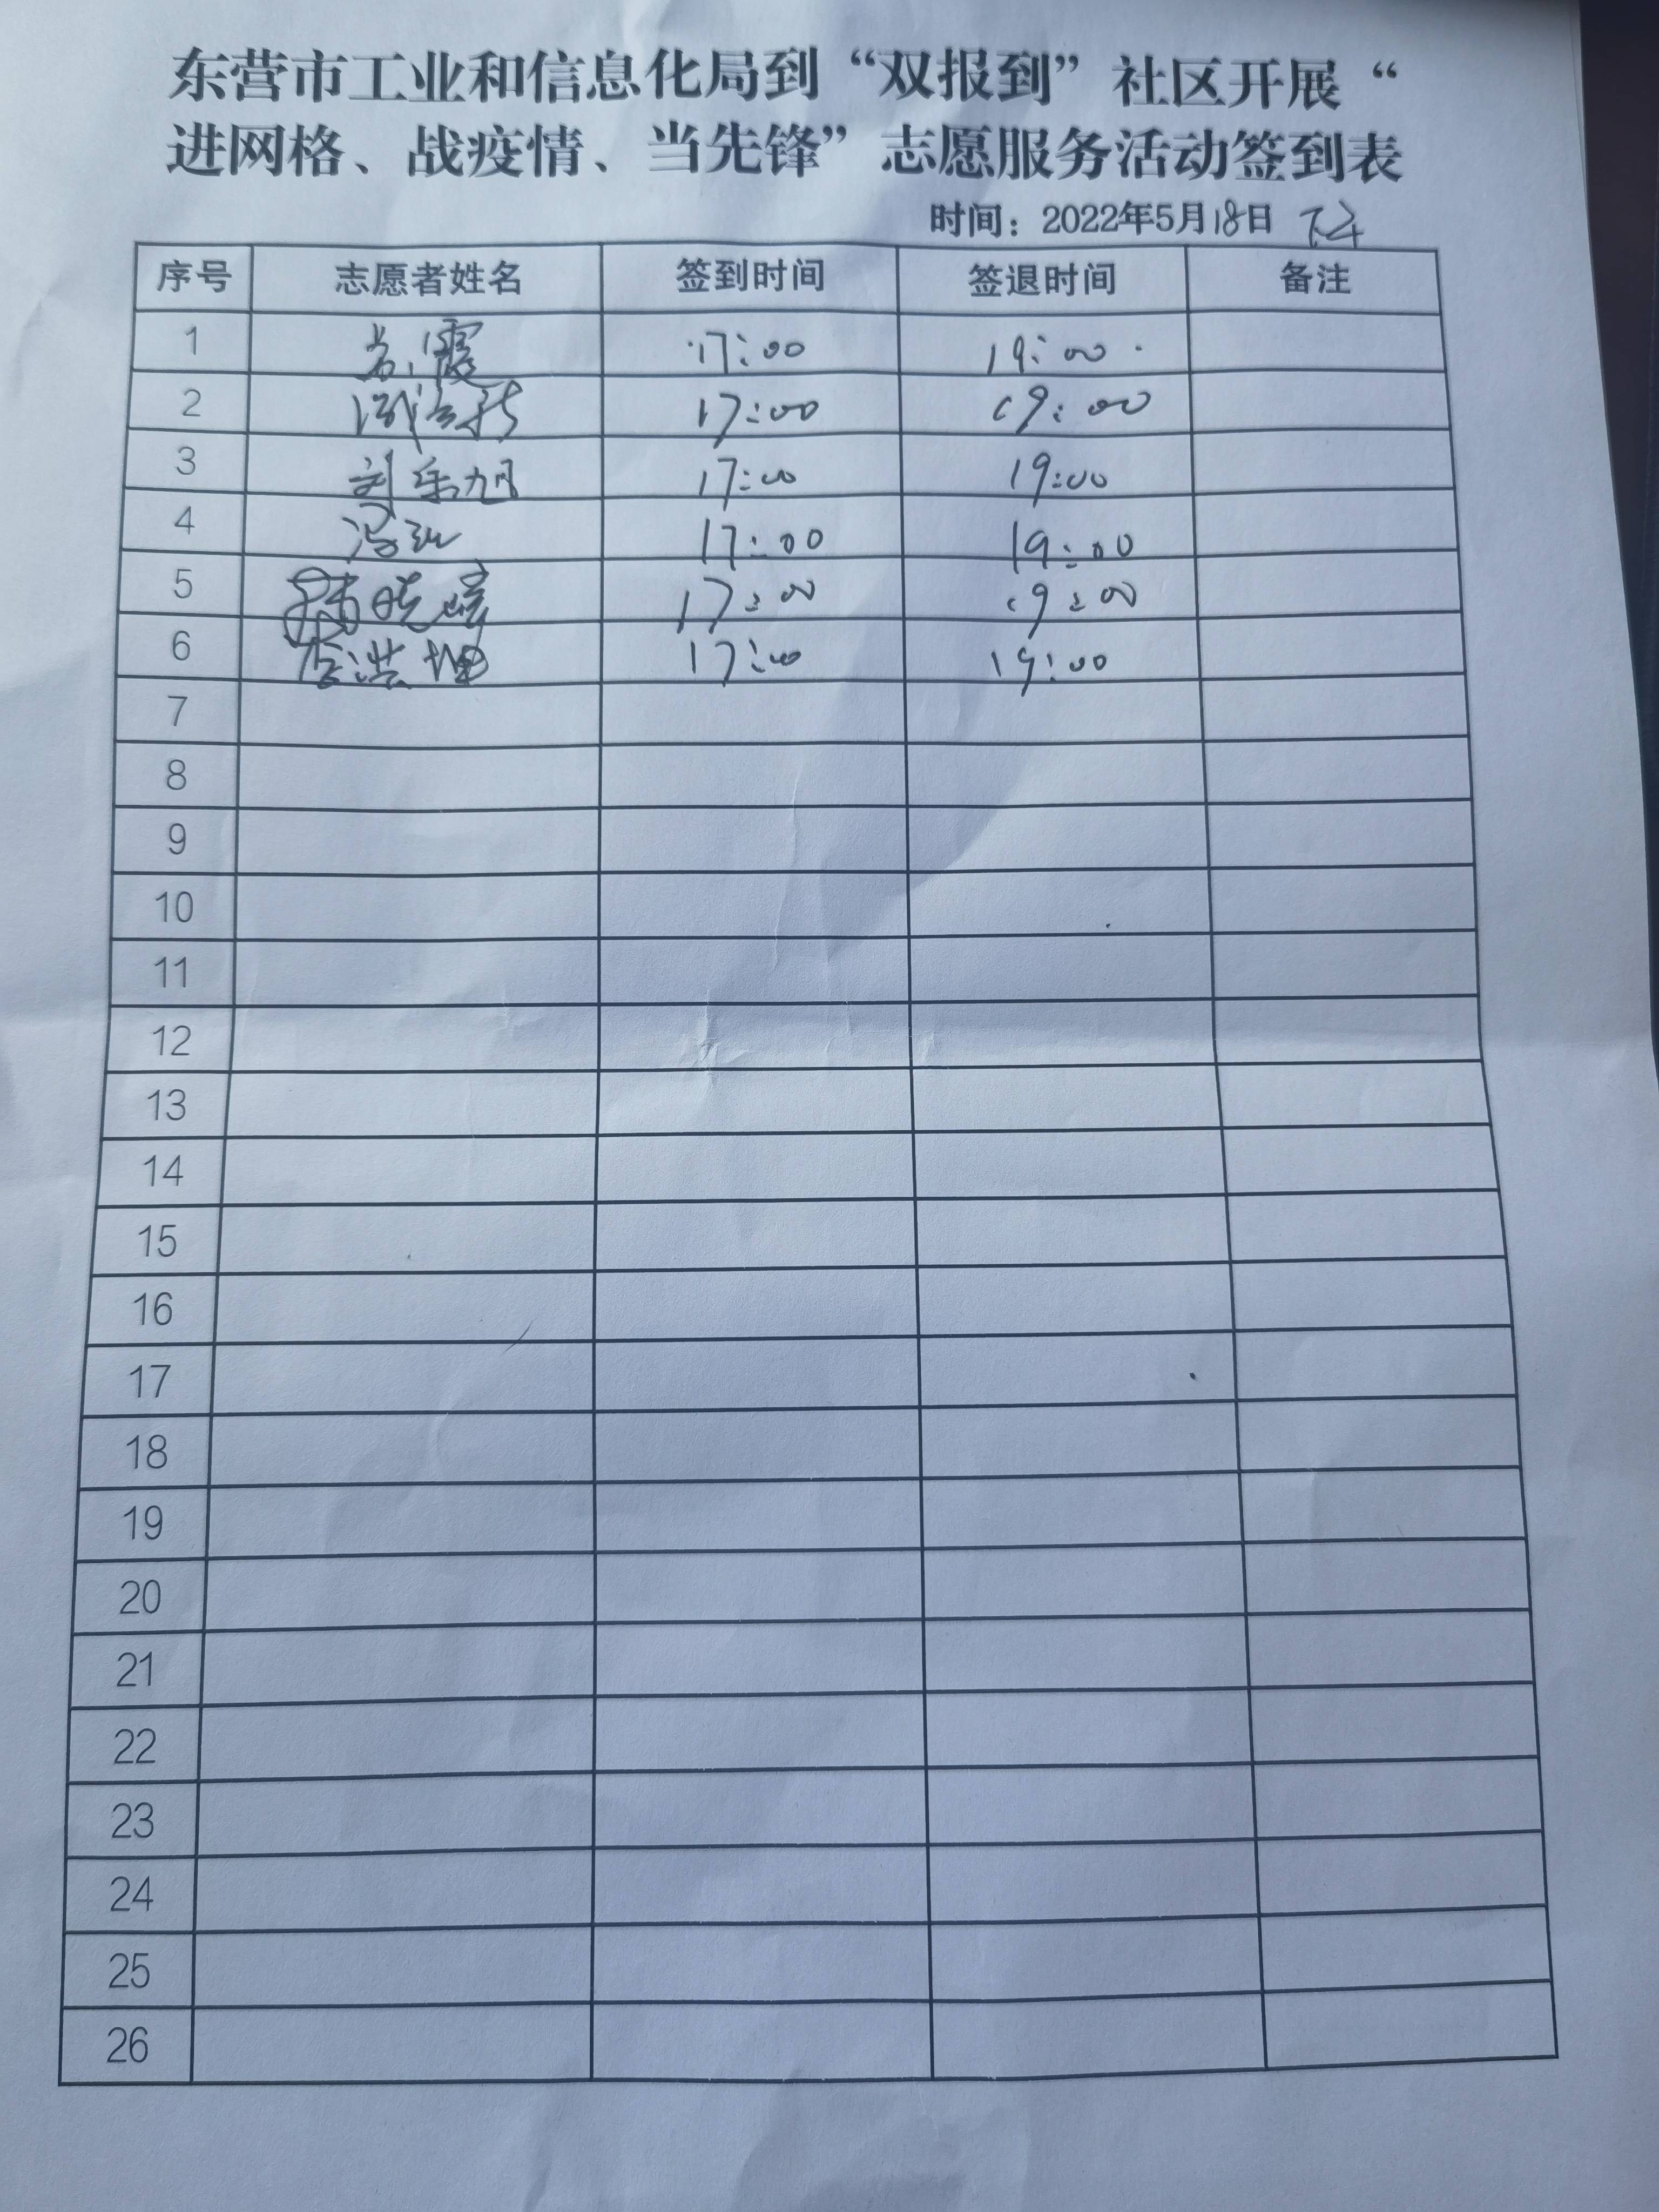 东营市工业和信息化局到“双报到”社区开展“
进网格、战疫情、当先锋”志愿服务活动签到表
时间：2022年5月18日 下午
序号 志愿者姓名 签到时间 签退时间 备注
1 霞 17:00 19:00
2 17:00 19:00
3 刘乐旭 17:00 19:00
4 17:00 19:00
5 晓 17:00 19:00
6 17:00 19:00
7
8
9
10
11
12
13
14
15
16
17
18
19
20
21
22
23
24
25
26